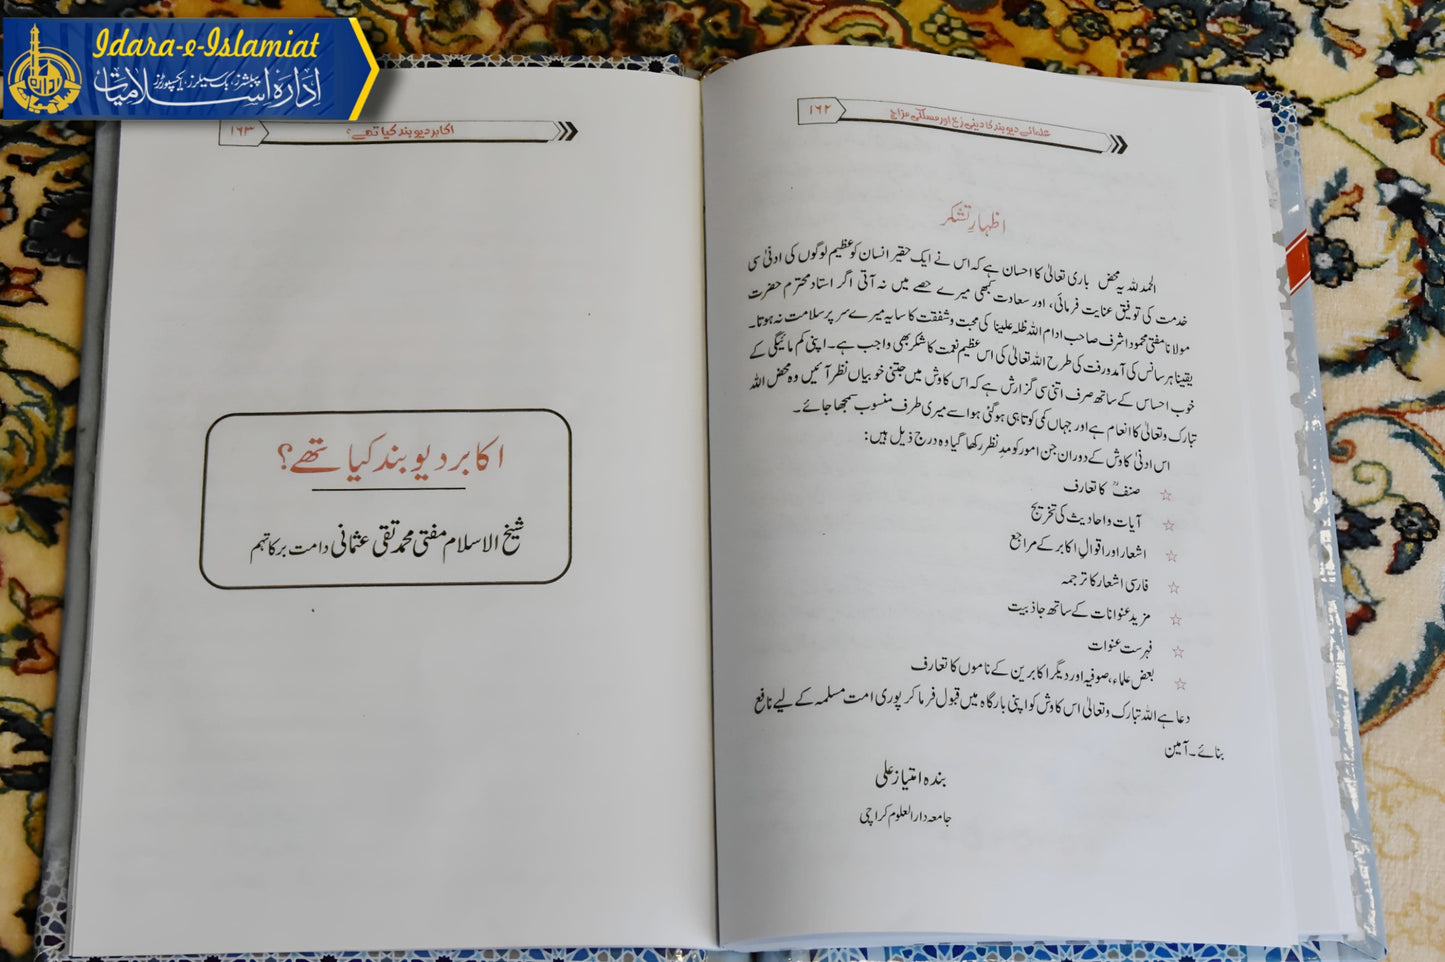 Idara-e-Islamiat
ادارہ اسلامیات
پبلشرز، بک سیلرز، ایکسپورٹرز
۱۶۲
علمائے دیوبند کا دینی رُخ اور مسلکی مزاج
اظہارِ تشکر
الحمدللہ یہ محض باری تعالیٰ کا احسان ہے کہ اس نے ایک حقیر انسان کو عظیم لوگوں کی ادنیٰ سی
خدمت کی توفیق عنایت فرمائی، اور سعادت کبھی میرے حصے میں نہ آتی اگر استاد محترم حضرت
مولانا مفتی محمود اشرف صاحب ادام اللہ ظلہ علینا کی محبت و شفقت کا سایہ میرے سر پر سلامت نہ ہوتا۔
یقینا ہر سانس کی آمد و رفت کی طرح اللہ تعالیٰ کی اس عظیم نعمت کا شکر بھی واجب ہے۔ اپنی کم مائیگی کے
خوب احساس کے ساتھ صرف اتنی سی گزارش ہے کہ اس کاوش میں جتنی خوبیاں نظر آئیں وہ محض اللہ
تبارک وتعالیٰ کا انعام ہے اور جہاں کمی کوتاہی ہوگئی ہو اسے میری طرف منسوب سمجھا جائے۔
اس ادنیٰ کاوش کے دوران جن امور کو مدِ نظر رکھا گیا وہ درج ذیل ہیں:
☆ صنفؒ کا تعارف
☆ آیات و احادیث کی تخریج
☆ اشعار اور اقوالِ اکابر کے مراجع
☆ فارسی اشعار کا ترجمہ
☆ مزید عنوانات کے ساتھ جاذبیت
☆ فہرست عنوات
☆ بعض علماء، صوفیہ اور دیگر اکابرین کے ناموں کا تعارف
دعا ہے اللہ تبارک وتعالیٰ اس کاوش کو اپنی بارگاہ میں قبول فرما کر پوری امت مسلمہ کے لیے نافع
بنائے۔ آمین
بندہ امتیاز علی
جامعہ دارالعلوم کراچی
۱۶۳
اکابر دیوبند کیا تھے؟
اکابر دیوبند کیا تھے؟
شیخ الاسلام مفتی محمد تقی عثمانی دامت برکاتہم